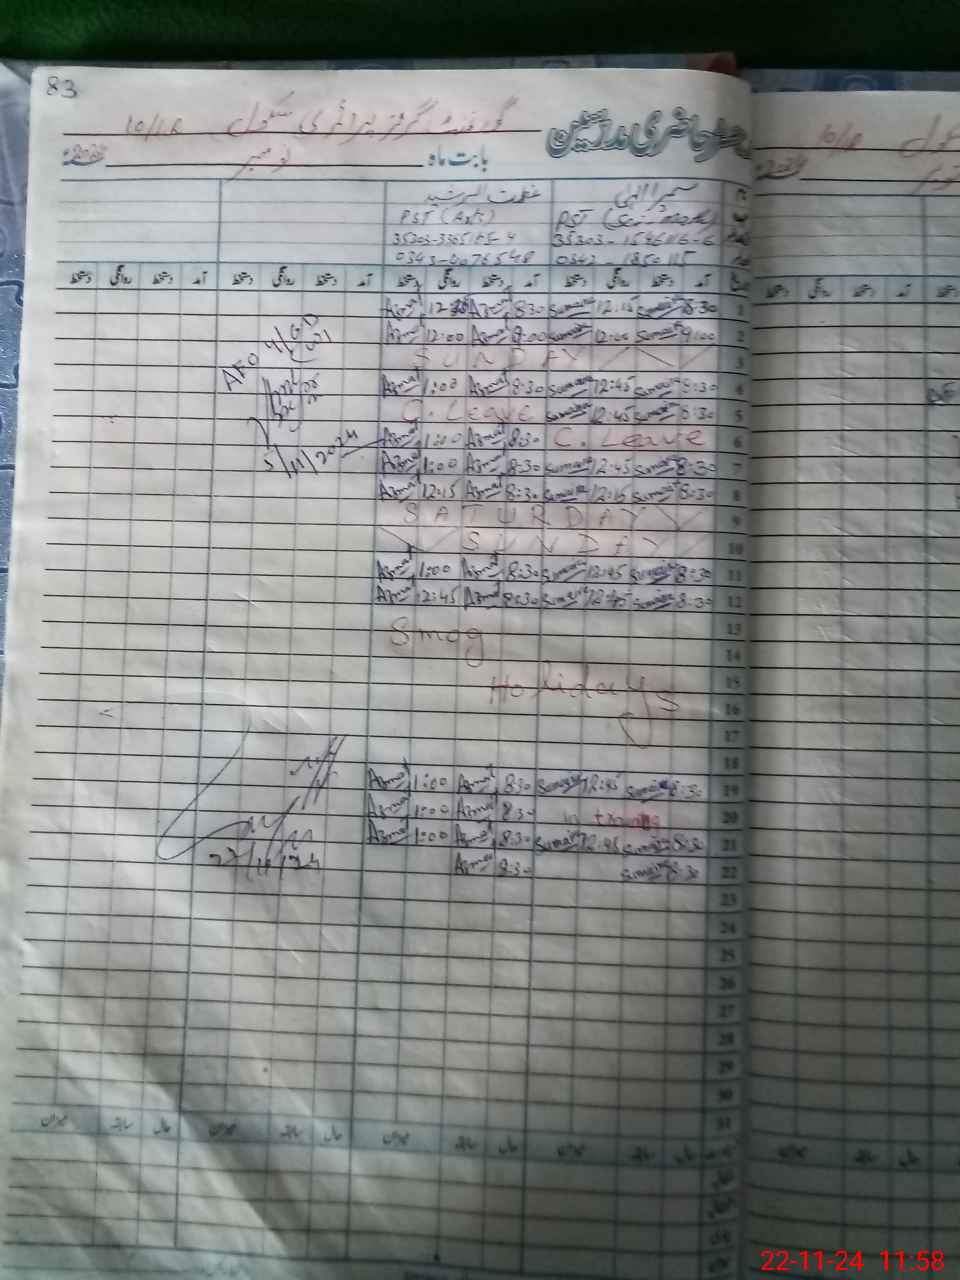 83
گورنمنٹ گرلز پرائمری سکول 10/1R
رجسٹر حاضری مدرسین
بابت ماہ نومبر
سمیرا الہی
PST (Arts) PST
35303-1546116-6
0343-1850115
دستخط روانگی دستخط آمد دستخط روانگی دستخط آمد دستخط روانگی دستخط آمد دستخط روانگی دستخط آمد
Azmat Azmat 8:30 Sumaira 12:15 Sumaira 8:30 1
Azmat 12:00 Azmat 9:00 Sumaira 12:00 Sumaira 9:00 2
SUNDAY 3
Azmat 1:00 Azmat 8:30 Sumaira 12:45 Sumaira 8:30 4
C. Leave Sumaira 12:45 Sumaira 8:30 5
Azmat 1:00 Azmat 8:30 C. Leave 6
Azmat 1:00 Azmat 8:30 Sumaira 12:45 Sumaira 8:30 7
Azmat 12:15 Azmat 8:30 Sumaira 12:15 Sumaira 8:30 8
SATURDAY 9
SUNDAY 10
Azmat 1:00 Azmat 8:30 Sumaira 12:45 Sumaira 8:30 11
Azmat 12:45 Azmat 8:30 Sumaira 12:45 Sumaira 8:30 12
Smog 13
14
Holidays 15
16
17
18
Azmat 1:00 Azmat 8:30 Sumaira 12:45 Sumaira 8:30 19
Azmat 1:00 Azmat 8:30 in 20
Azmat 1:00 Azmat 8:30 Sumaira 12:45 Sumaira 8:30 21
Azmat 8:30 Sumaira 8:30 22
23
24
25
26
27
28
29
30
31
AEO
5/11/2024
22/11/24
میزان سابقہ حال میزان سابقہ حال میزان سابقہ حال میزان سابقہ حال
10/1R سکول
22-11-24 11:58